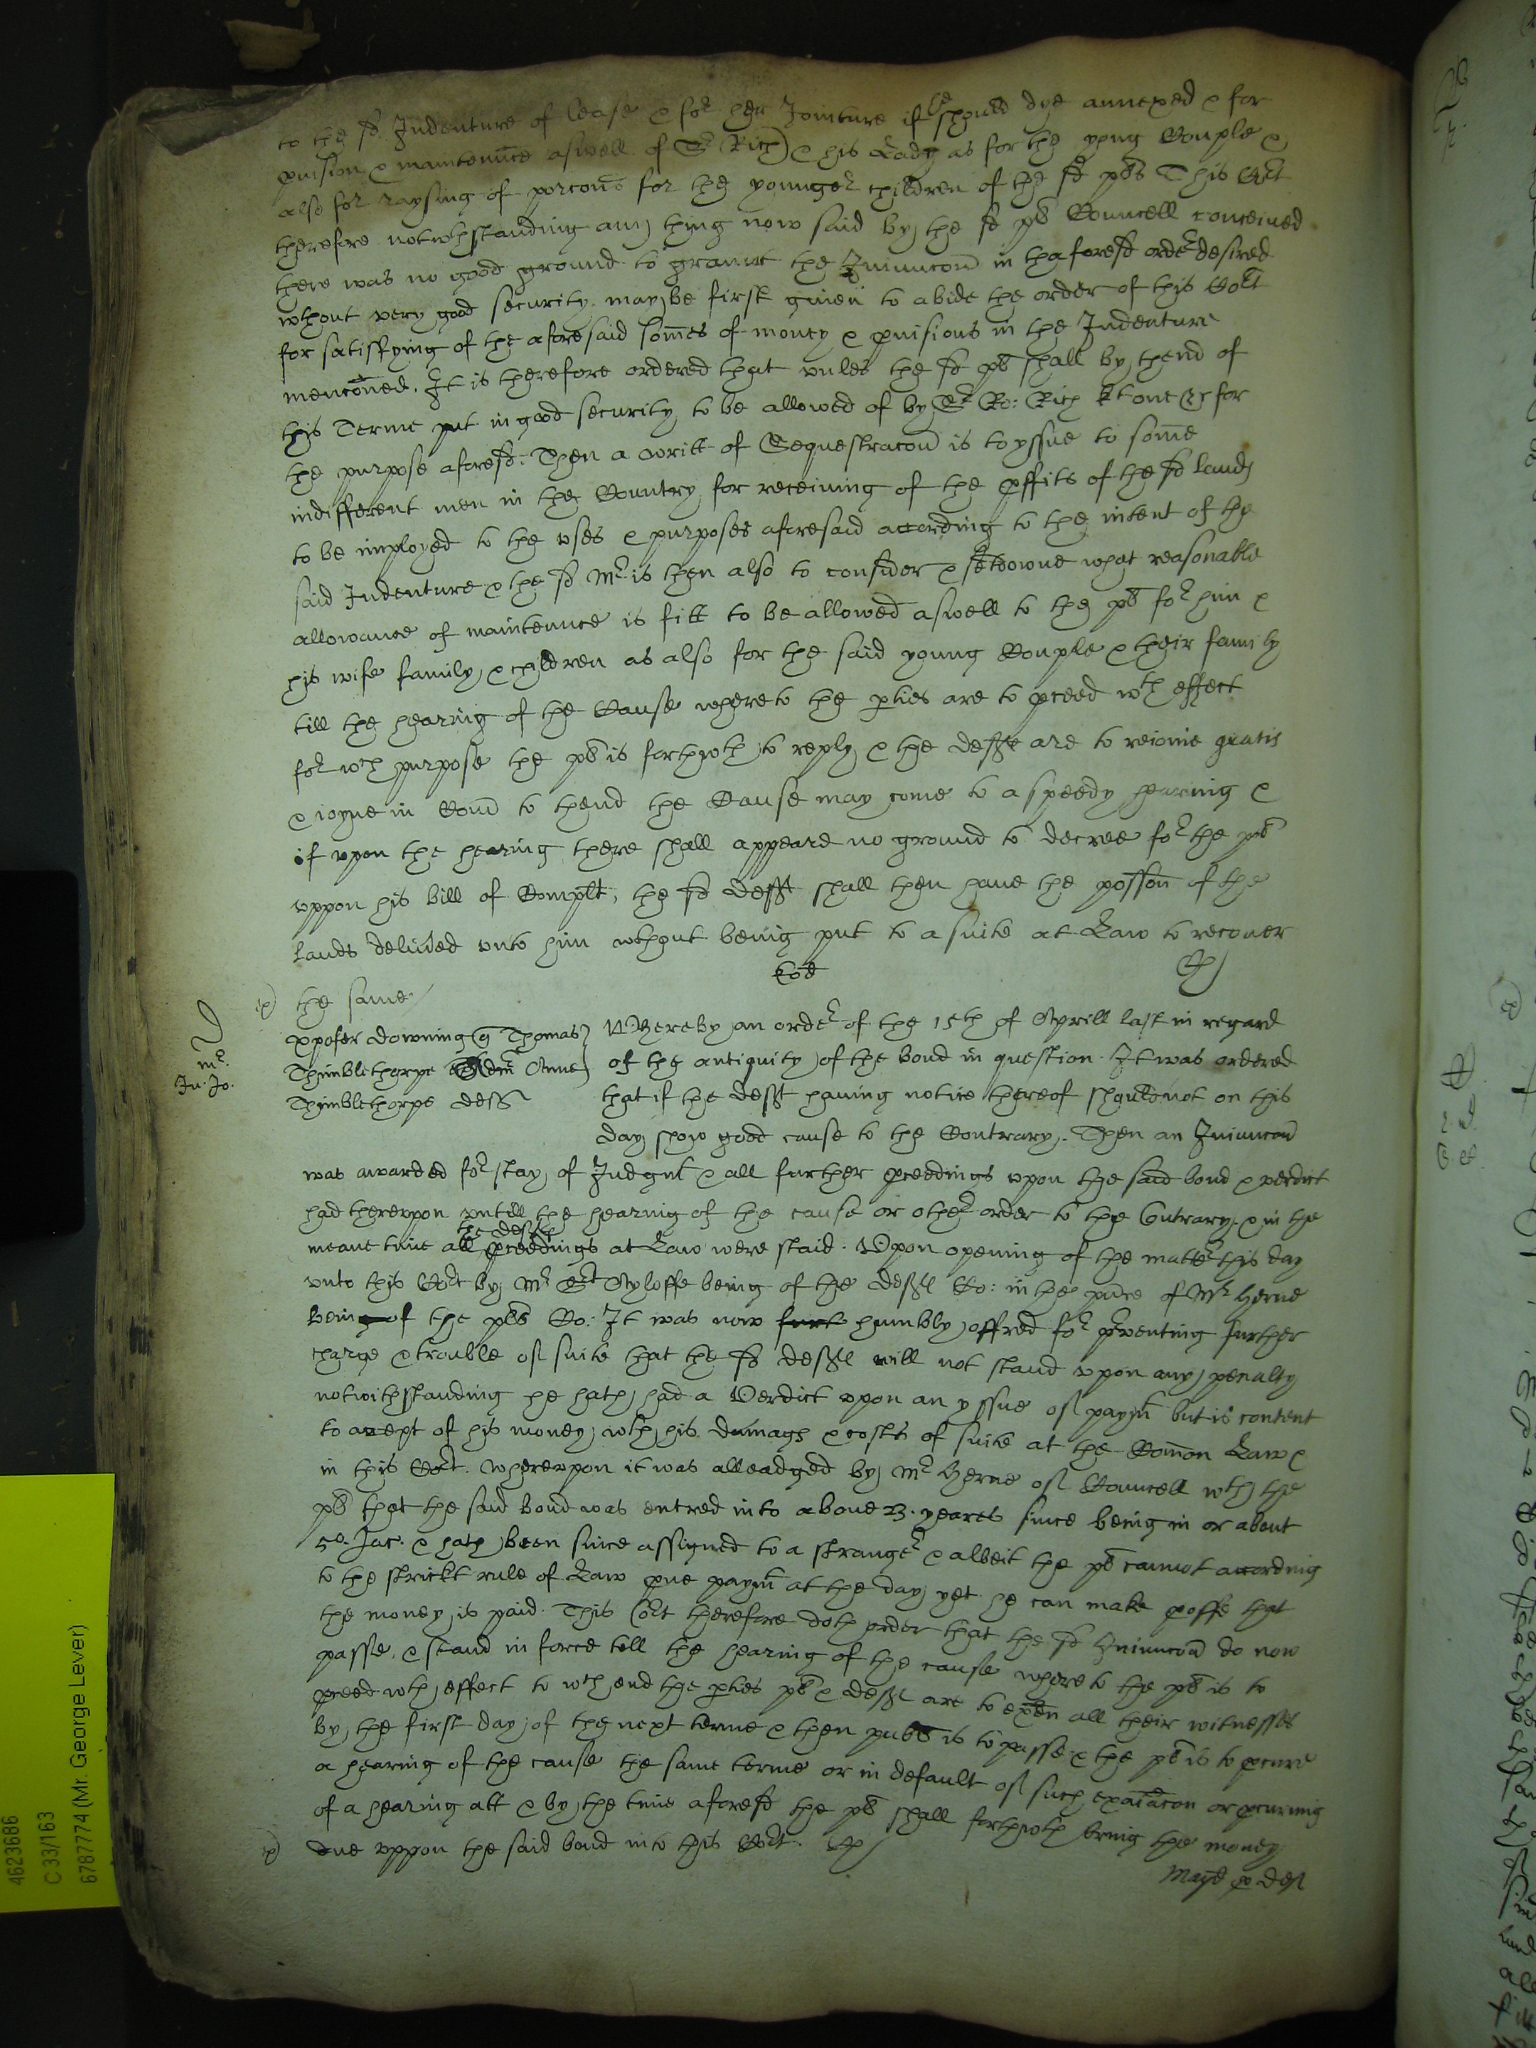 to the sd Indenture of lease & for her Jointure if he should dye annexed & for
pvision & maintennce aswell of Sr Rich & his Lady as for the yong Couple &
also for raysing of porcons for the younger children of the sd pls This Cort
therefore notwthstanding any thing now said by the sd pls Councell conceived
there was no good ground to graunt the Iniuncon in thaforesd order desired
wthout very good security may be first given to abide the order of this Cort
for satisfying of the aforesaid somes of money & pvisions in the Indenture
menconed. It is therefore ordered that unles the sd pl shall by thend of
this Terme put in good security to be allowed of by Sr Ro: Rich kt one &c for
the purpose aforesd: Then a writt of Sequestracon is to yssue to some
indifferent men in the Country for receiving of the pffits of the sd lands
to be imployed to the uses & purposes aforesaid according to the intent of the
said Indenture & the sd Mr is then also to consider & sett downe what reasonable
allowance of maintennce is fitt to be allowed aswell to the pl for him &
his wife family & children as also for the said young Couple & their family
till the hearing of the Cause whereto the pties are to pceed wth effect
for wch purpose the pl is forthwth to reply & the defte are to reioine gratis
& ioyne in Com to thend the Cause may come to a speedy hearing &
if upon the hearing there shall appeare no ground to decree for the pl
uppon his bill of Complt, the sd deft shall then have the posson of the
lands delived unto him wthout being put to a suite at Law to recover
the same
Xpofer Downing q Thomas
Thimblethorpe Adm Anne
Thimblethorpe defts
Whereby an order of the 15th of Aprill last in regard
of the antiquity of the bond in question. It was ordered
that if the deft having notice thereof should not on this
day show good cause to the Contrary. Then an Iniuncon
was awarded for stay of Judgmt & all further pceedings upon the said bond & verdict
had thereupon untill the hearing of the cause or other order to the Contrary, & in the
the defts
meane time all pceedings at Law were staid. Upon opening of the matter this day
unto this Cort by Mr Srt Ayloffe being of the defts Co: in the pnce of Mr Herne
being of the pls Co: It was now humbly offred for pventing further
charge & trouble of suite that the sd deft will not stand upon any penalty
notwithstanding he hath had a Verdict upon an yssue of paymt but is content
to accept of his money wth his damags & costs of suite at the Comon Law &
in this Cort. Whereupon it was alleadged by Mr Herne of Councell wth the
pl that the said bond was entred into above 23 yeares since being in or about
5o. Jac. & hath been since assigned to a stranger & albeit the pl cannot according
to the strickt rule of Law pve paymt at the day yet he can make proffe that
the money is paid. This Cort therefore doth order that the sd Iniuncon do now
passe & stand in force till the hearing of the cause whereto the pl is to
pceed wth effect to wch end the pties pl & deft are to exen all their witnesses
by the first day of the next terme & then publ is to passe & the pl is to pcure
a hearing of the cause the same terme or in default of such exaiacon or pcuring
of a hearing att & by the time aforesd the pl shall forthwth bring the money
due uppon the said bond into this Cort.
4623686
C 33/163
6787774 (Mr. George Lever)